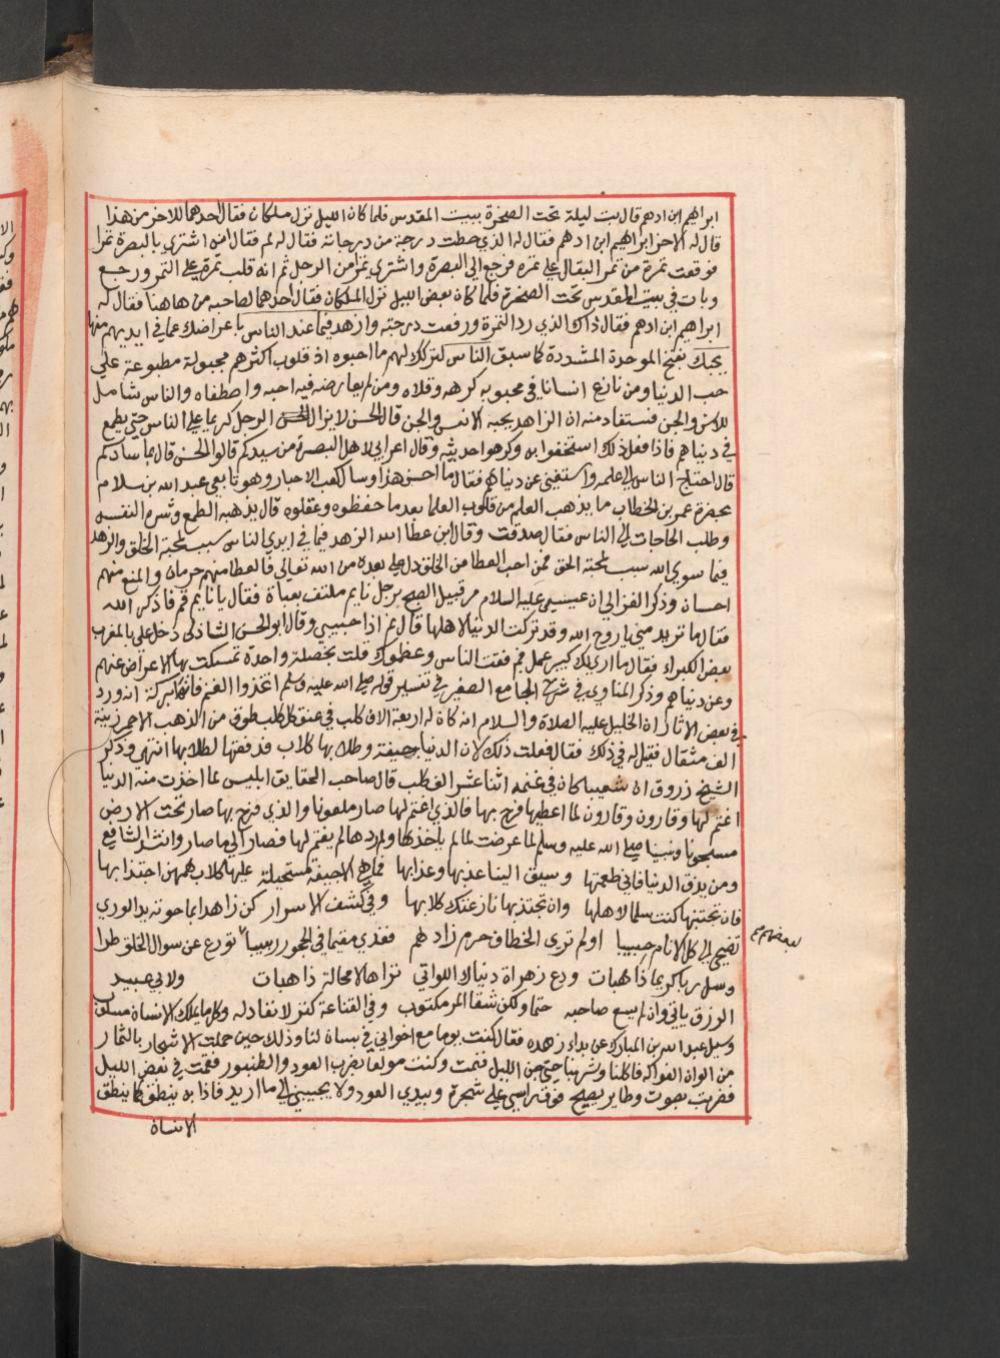 ابراهيم ابن ادهم قال بت ليلة تحت الصخرة ببيت المقدس فلما كان الليل نزل ملكان فقال احدهما للاخر من هذا
قال له الاخر ابراهيم ابن ادهم فقال له الذي حطت درجة من درجاته فقال له لم فقال انه اشتري بالبصرة تمرا
فوقعت تمرة من تمر البقال علي تمره فرجع الي البصرة واشتري تمرا من الرجل ثم انه قلب تمرة علي التمر ورجع
وبات في بيت المقدس تحت الصخرة فلما كان بعض الليل نزل الملكان فقال احدهما لصاحبه من هاهنا فقال له
ابراهيم ابن ادهم فقال ذاك الذي رد التمرة ورفعت درجته وازهد فيما عند الناس باعراضك عما في ايديهم منها
يحبك بفتح الموحدة المشددة كما سبق الناس لتركك لهم ما احبوه اذ قلوب اكثرهم مجبولة مطبوعة علي
حب الدنيا ومن نازع انسانا في محبوبه كرهه وقلاه ومن لم يعارضه فيه احبه واصطفاه والناس شامل
للانس والجن فيستفاد منه ان الزاهد يحبه الانس والجن قال الحسن لا يزال الرجل كريما علي الناس حتي يطمع
في دنياهم فاذا فعل ذلك استخفوا به وكرهوا حديثه وقال اعرابي لاهل البصرة من سيدكم قالوا الحسن قال بما سادكم
قال احتاج الناس الي علمه واستغني عن دنياهم فقال ما احسن هذا وسال كعب الاحبار وهو تابعي عبد الله بن سلام
بحضرة عمر بن الخطاب ما يذهب العلم من قلوب العلما بعد ما حفظوه وعقلوه قال يذهبه الطمع وشره النفس
وطلب الحاجات الي الناس فقال صدقت وقال ابن عطا الله الزهد فيما في ايدي الناس سبب لمحبة الخلق والزهد
فيما سوي الله سبب لمحبة الحق فمن احب العطا من الخلق دل علي بعده من الله تعالي فالعطا منهم حرمان والمنع منهم
احسان وذكر الغزالي ان عيسي عليه السلام مر قبيل الصبح برجل نايم ملتف بعباة فقال يا نايم قم فاذكر الله
فقال ما تريد مني يا روح الله وقد تركت الدنيا لاهلها قال نم اذا حبيبي وقال ابو الحسن الشاذلي دخل علي بالمغرب
بعض الكبراء فقال ما اري لك كبير عمل فبم فقت الناس وعظموك قلت بخصلة واحدة تمسكت بها الاعراض عنهم
وعن دنياهم وذكر المناوي في شرح الجامع الصغير في تفسير قوله صلي الله عليه وسلم اتخذوا الغنم فانها بركة انه ورد
في بعض الاثار ان الخليل عليه الصلاة والسلام انه كان له اربعة الاف كلب في عنق كل كلب طوق من الذهب الاحمر زينة
الف مثقال فقيل له في ذلك فقال فعلت ذلك لان الدنيا جيفة وطلابها كلاب فدفعتها لطلابها انتهي وذكر
الشيخ زروق ان شعيبا كان في غنمه اثنا عشر الف كلب قال صاحب الحقايق ابليس لما اخذت منه الدنيا
اغتم لها وقارون وقارون لما اعطيها فرح بها فالذي اغتم لها صار ملعونا والذي فرح بها صار تحت الارض
مسجونا ونبينا صلي الله عليه وسلم لما عرضت لما لم ياخذها ولم ردها لم يغتم لها فصار الي ما صار وانشد الشافعي
ومن يذق الدنيا فاني طعمتها وسيق الينا عذبها وعذابها فما هي الا جيفة مستحيلة عليها كلاب همهن اجتذابها
فان تجتنبها كنت سلما لاهلها وان تجتذبها نازعتك كلابها وفي كشف الاسرار كن زاهدا بما حوته يد الوري
تضحي الي كل الانام حبيبا اولم تري الخطاف حرم زادهم فغدي مقيما في الحجور ربيبا تورع عن سوال الخلق طرا
وسل ربا كريما ذا هبات ودع زهراة دنياك اللواتي تراها لا محالة ذاهبات ولابي عبيد
الرزق ياتي وان لم يسع صاحبه حتما ولكن شقا المر مكتوب وفي القناعة كنز لا نفاد له وكل ما يملك الانسان مسلوب
وسيل عبد الله بن المبارك عن بداء زهده فقال كنت يوما مع اخواني في بستان لنا وذلك حين حملت الاشجار بالثمار
من الوان الفواكه فاكلنا وشربنا حتي جن الليل فنمت وكنت مولعا بضرب العود والطنبور فقمت في بعض الليل
فضربت بصوت وطاير يصيح فوق راسي علي شجرة وبيدي العود ولا يجيبني الي ما اريد فاذا به ينطق كما ينطق
الانسان